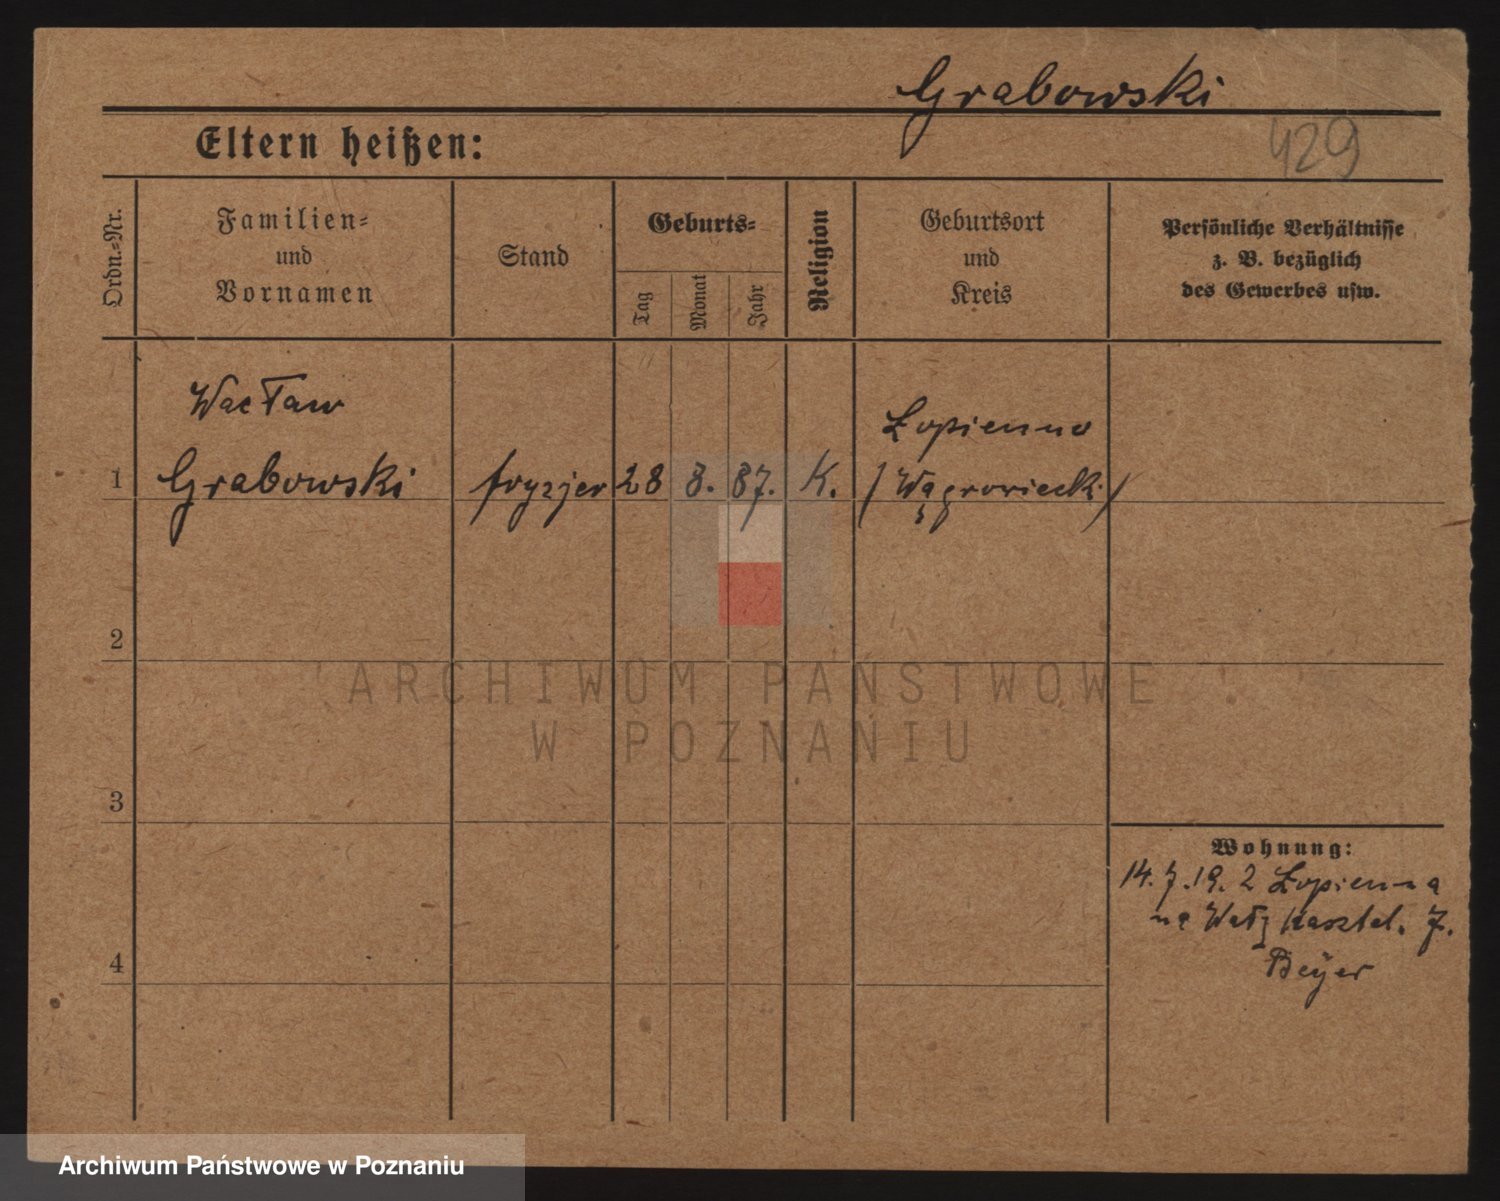 Grabowski
429
Eltern heißen:
Ordn.-Nr.
Familien-
und
Vornamen
Stand
Geburts-
Tag
Monat
Jahr
Religion
Geburtsort
und
Kreis
Persönliche Verhältnisse
z. B. bezüglich
des Gewerbes usw.
Wacław
Łopienno
1 Grabowski fryzjer 28 8. 87. K. (Wągrowiecki)
2
ARCHIWUM PAŃSTWOWE
W POZNANIU
3
Wohnung:
14. 7. 19. z Łopienna
na Kasztel. 7.
4
Beyer
Archiwum Państwowe w Poznaniu